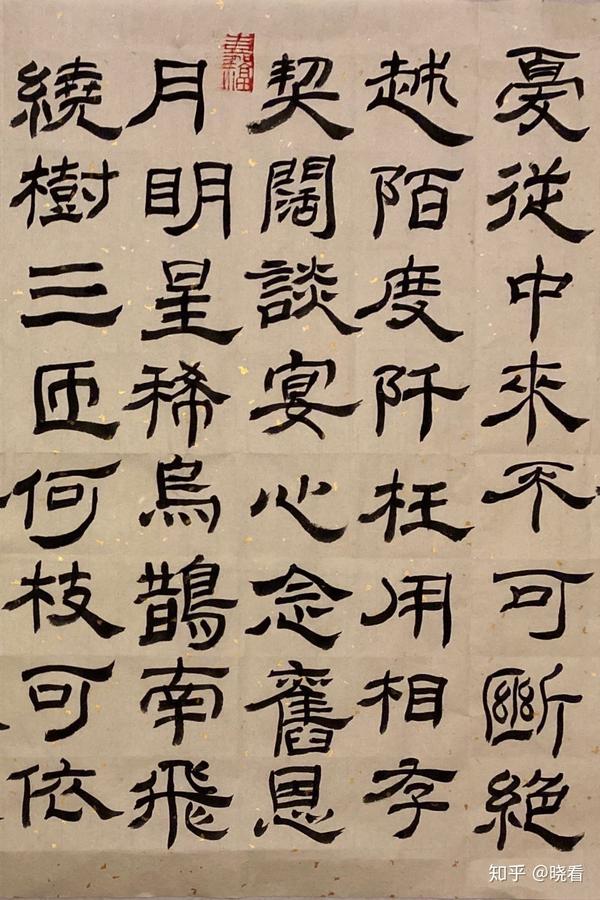 憂従中來不可斷絶
越陌度阡枉用相存
契闊談宴心念舊恩
月明星稀烏鵲南飛
繞樹三匝何枝可依
知乎 @晓看